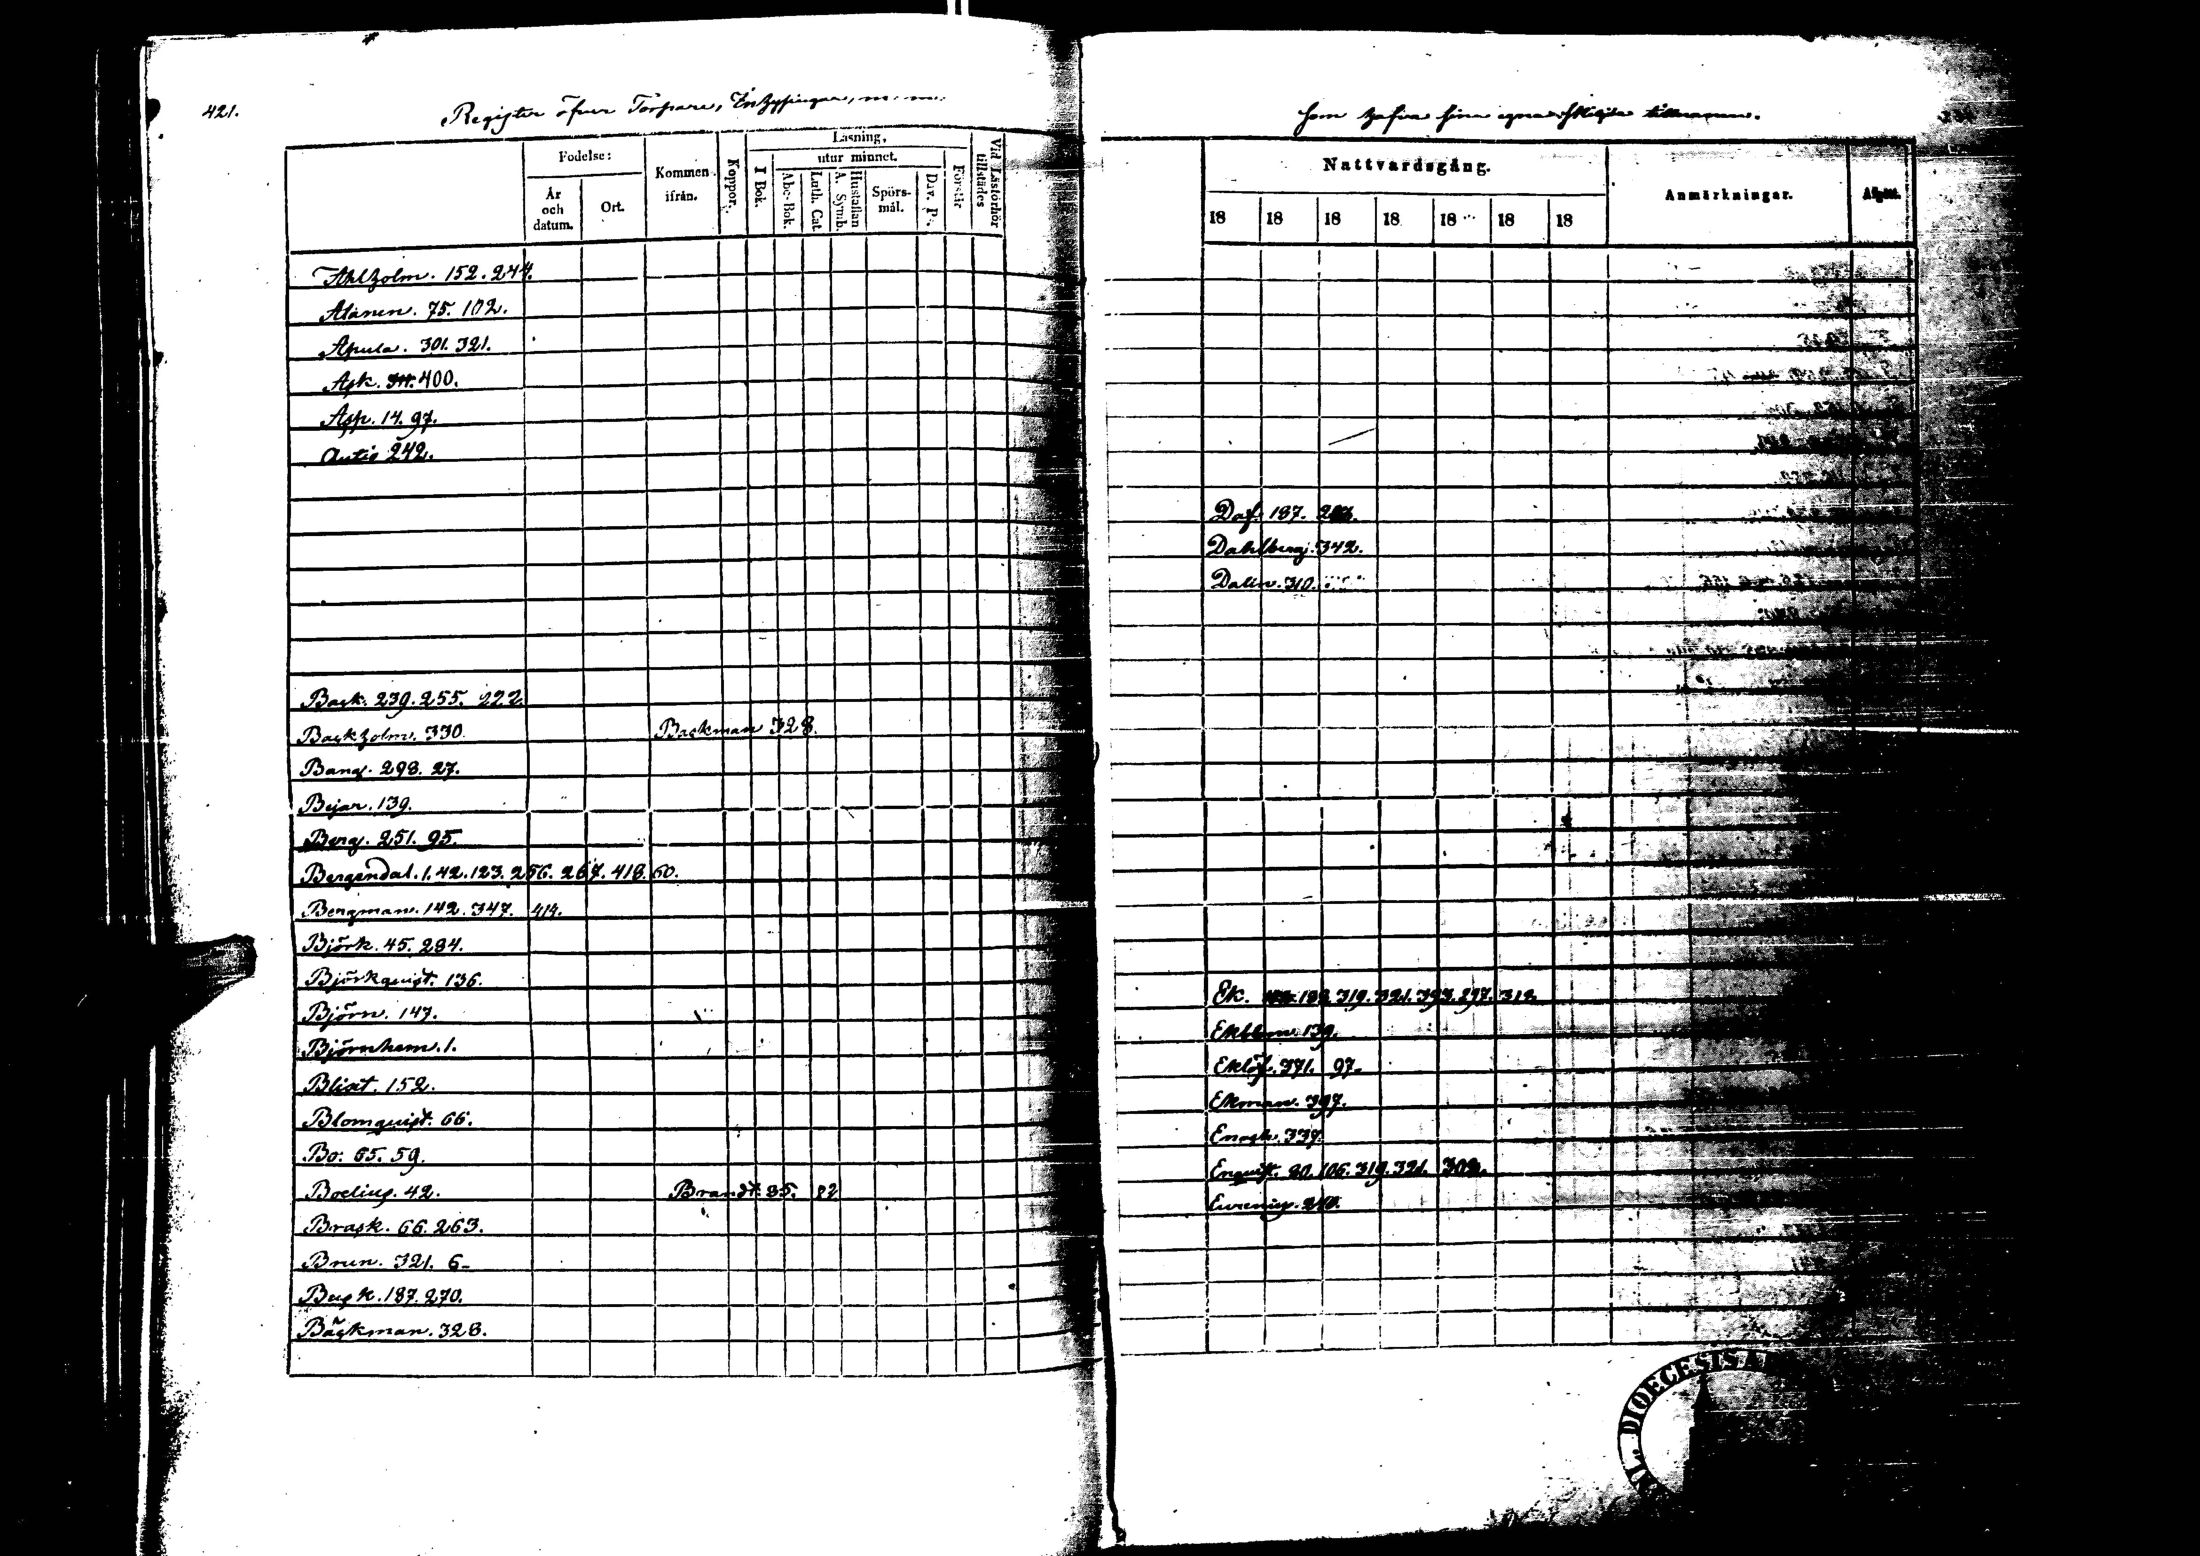 421.
Register öfver Torpare, Inhysingar, m. m.
Födelse:
År och datum.
Ort.
Kommen ifrån.
Koppor.
Läsning,
I Bok.
utur minnet.
Abc-Bok.
Luth. Cat.
Hustaflan A. Symb.
Spörsmål.
Dav. Ps.
Förstår
Vid Läsförhör tillstädes
Ahlholm. 152. 244.
Alanen. 75. 102.
Apula. 301. 321.
Ask. 400.
Asp. 14. 97.
Antio 242.
Back. 239. 255. 222.
Backholm. 330. Backman 328.
Bang. 298. 27.
Bejar. 139.
Berg. 251. 95.
Bergendal. 1. 42. 123. 256. 267. 418. 60.
Bergman. 142. 347. 414.
Björk. 45. 284.
Björkquist. 136.
Björn. 147.
Björnhem. 1.
Bliat. 152.
Blomquist. 66.
Bo. 65. 59.
Boelius. 42. Brandt. 35. 82
Brask. 66. 263.
Brun. 321. 6
Busk. 187. 270.
Bäckman. 328.
som hafva sina egna tillnamn.
Nattvardsgång.
Anmärkningar.
Afgått.
18 18 18 18 18 18 18
Daf. 187.
Dahlberg. 342.
Dalin. 310.
Ek. 188. 319. 321. 393. 297. 312.
Ekblom. 139.
Eklöf. 371. 97
Ekman. 397.
Enogh. 337.
Enquist. 20. 106. 319. 321. 302.
Eurenius. 240.
DIOECESIS